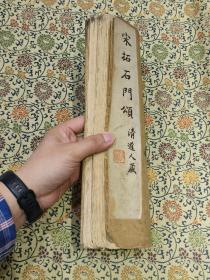 宋拓石門頌
清道人藏